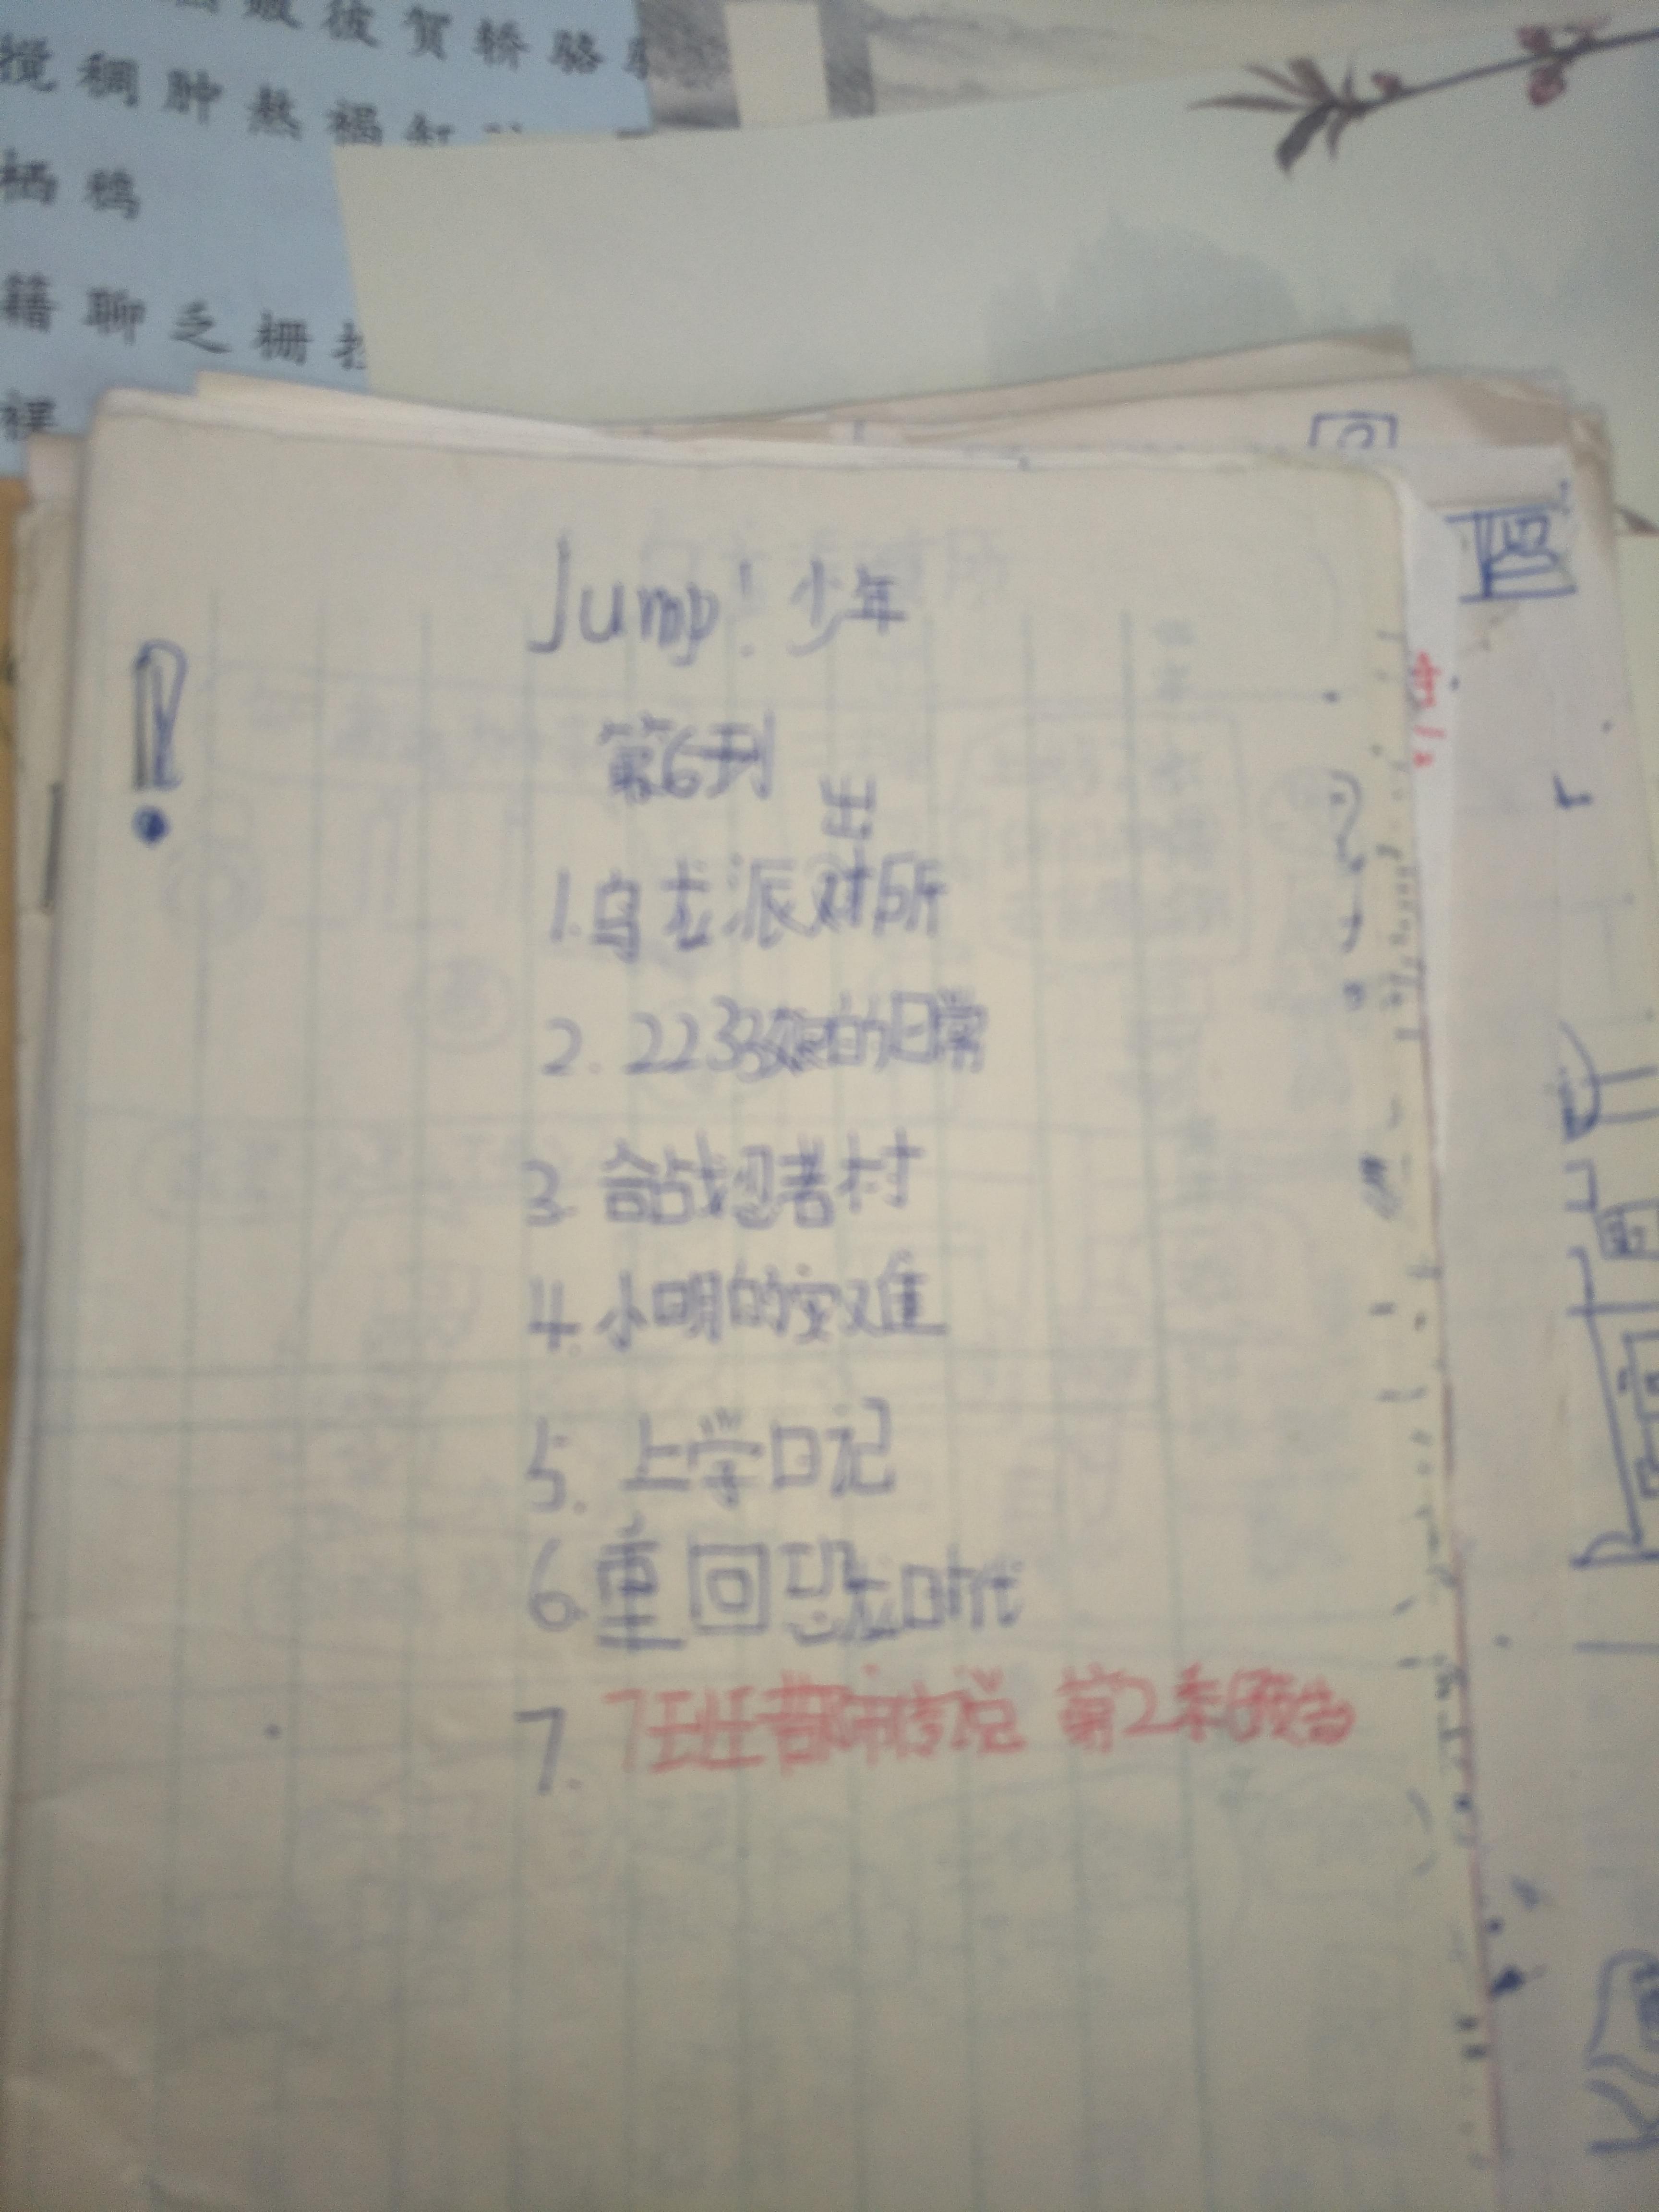 嫂彼贺轿骆
搅稠肿熬褐缸
栖鸦
籍聊乏栅
Jump! 少年
第6刊
出
1.乌龙派对所
2. 2233娘的日常
3. 命战忍者村
4.小明的灾难
5. 上学日记
6.重回恐龙时代
7. 7班都市传说 第2季预告